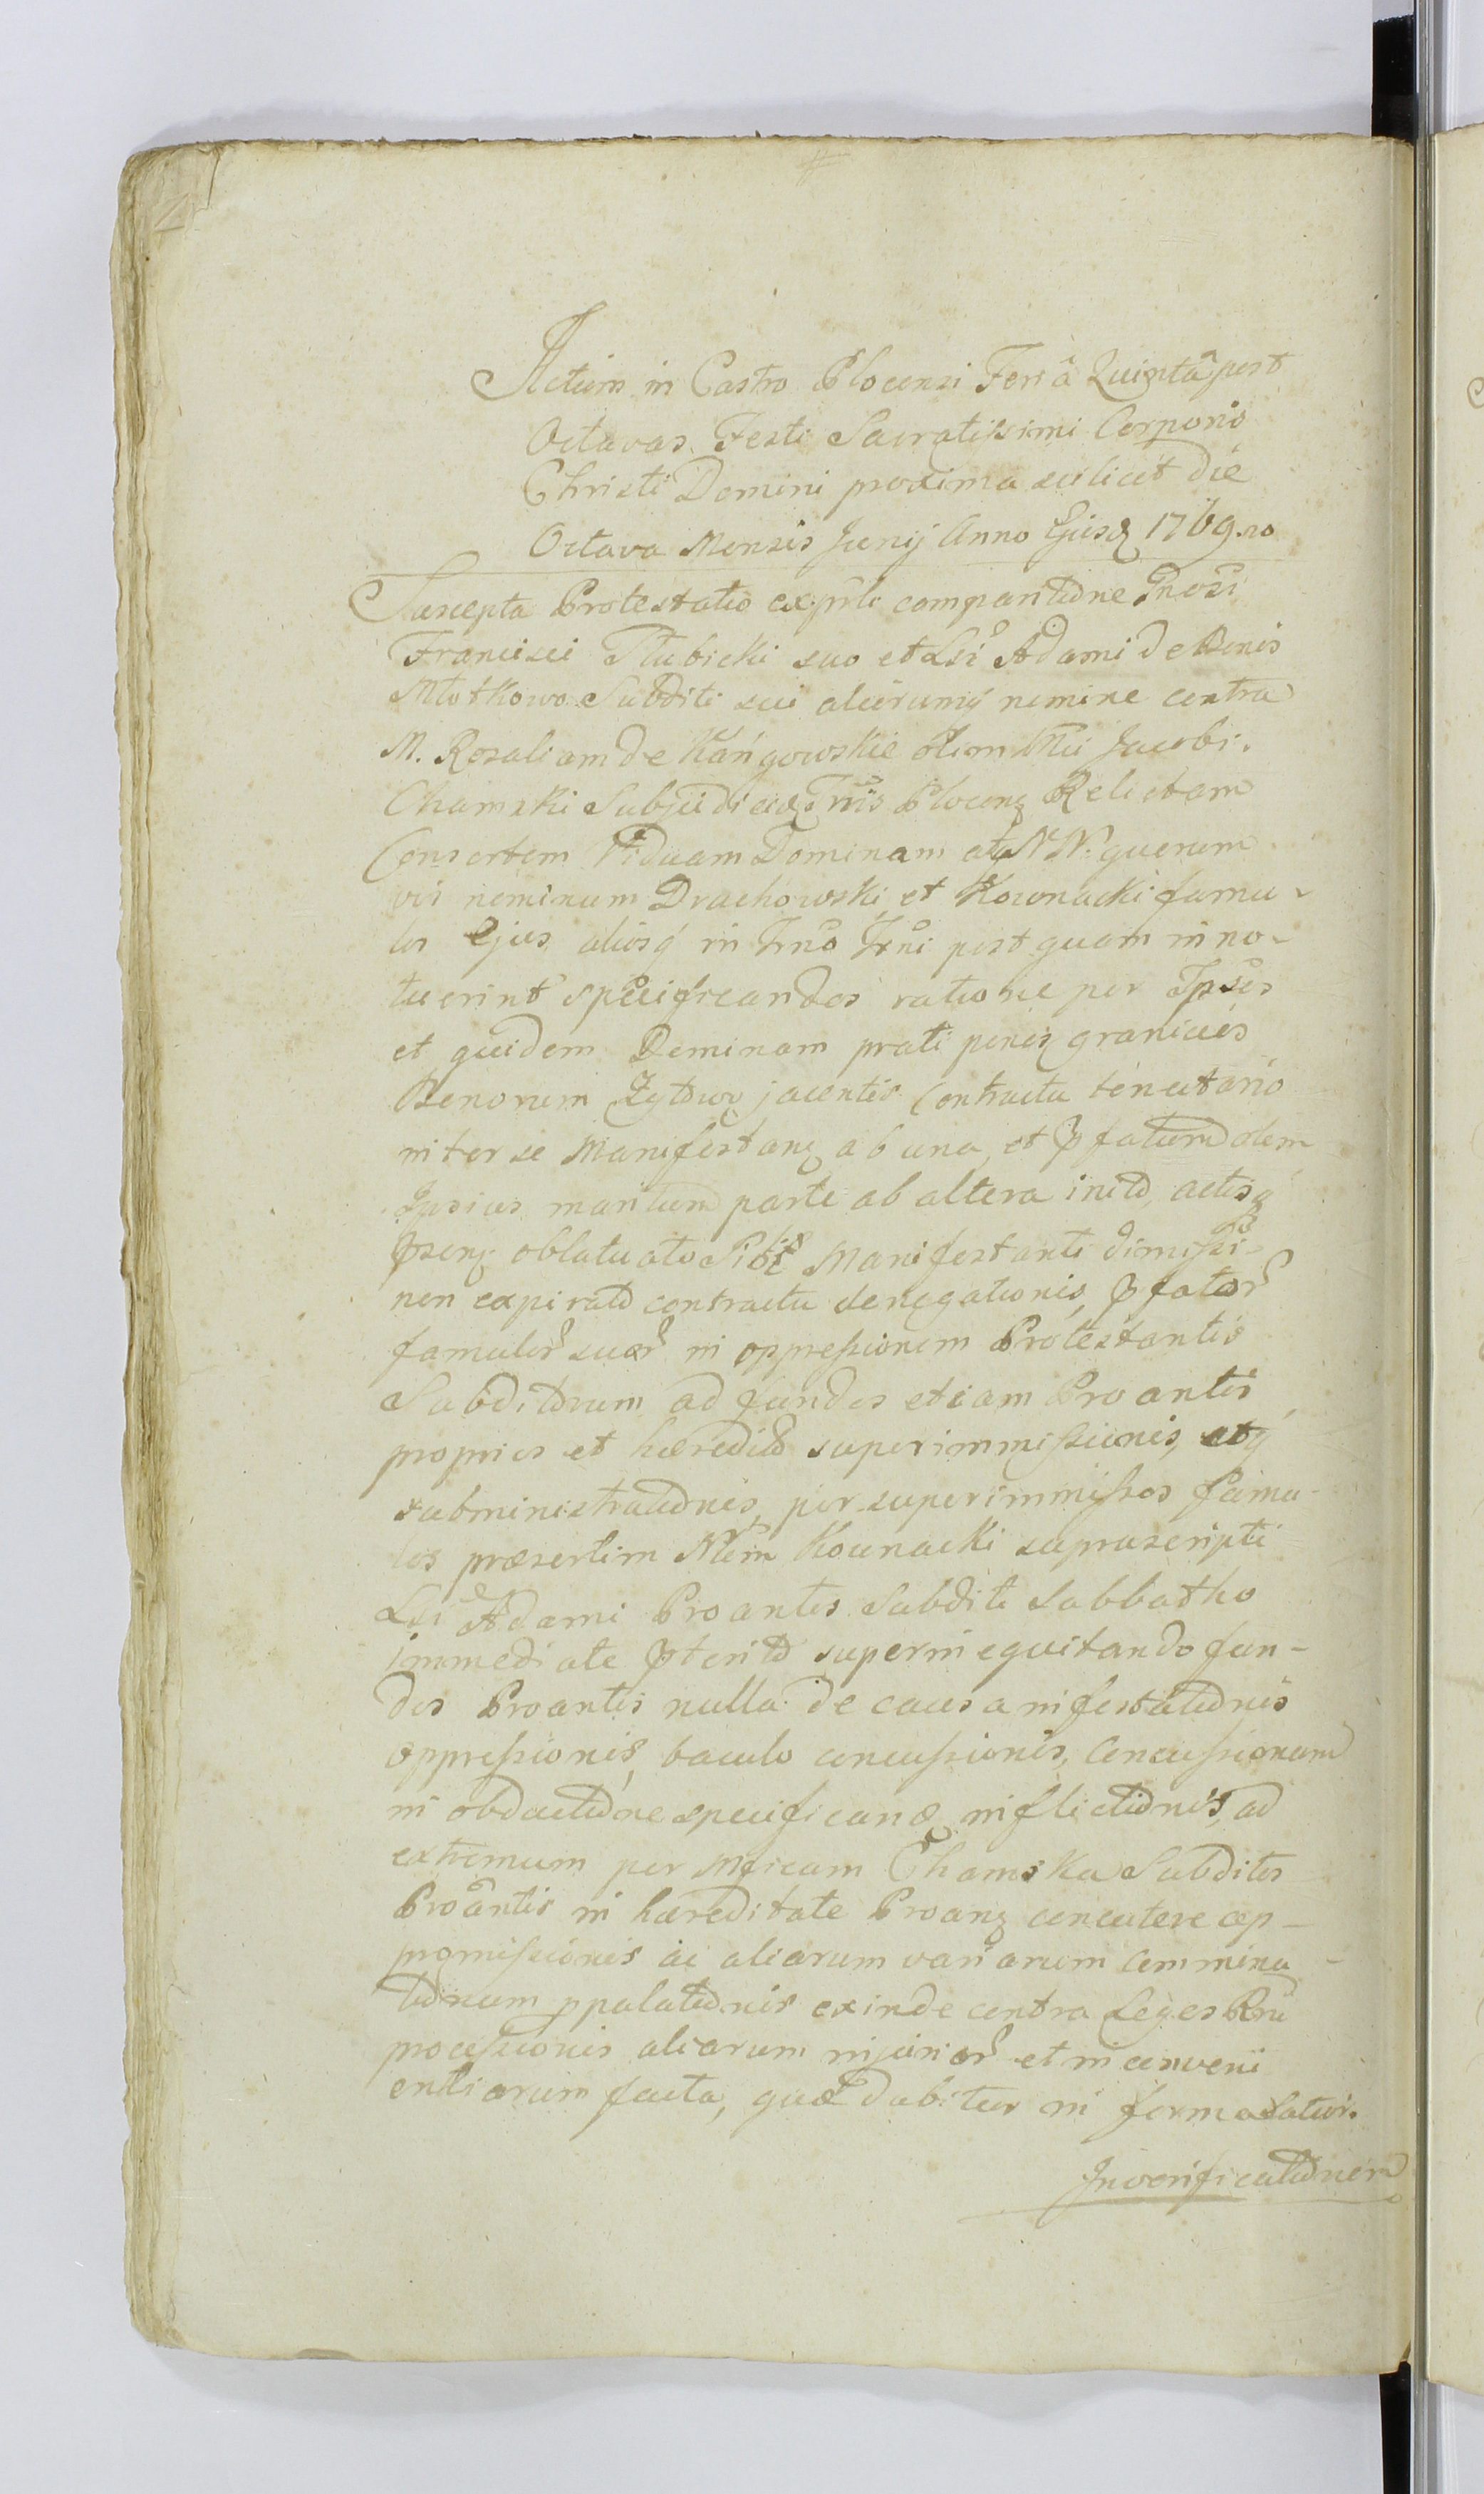 Actum in Castro Plocensi Feriâ Quintâ post
Octavas Festi Sacratissimi Corporis
Christi Domini proxima scilicet die
Octava Mensis Junij Anno Ejusq 1769.no
Suscepta Protestatio ex psli comparitione Gnosi
Francisci Słubicki suo et Lsi Adami de Bonis
Młotkowo Subditi sui aliorumq nomine contra
M. Rosaliam de Kańgowskie olim Mci Jacobi
Chamski Subjudicis Tris Plocens Relictam
Consortem Viduam Dominam atq NN: quorum
vis nominum Drachowski et Kownacki famu-
los Ejus aliosq in Trno Trni postquam inno-
tuerint specificandos ratione per Ipsos
et quidem Dominam prati penes granicies
Bonorum Zytowo jacentis Contractu tenutario
inter se Manifestans ab una, et Pfatum olim
Ipsius maritum parte ab altera inito, actisq
Psens oblatu ato Sibi Manifestanti dimissi-
non expirato contractu denegationis, Pfator
famulor suor in oppressionem Protestantis
Subditorum ad fundos etiam Proantis
proprios et hæredit superimmissionis, atq
subministrationis, per superimmissos famu-
los præsertim Nlem Kownacki suprascripti
Lsi Adami Proantis Subditi Sabbatho
immediate Pterito superinequitando fun-
dos Proantis nulla de causa infestationis
oppressionis, baculo concussionis, Concussionum
in obductione specificand inflictionis, ad
extremum per Mficam Chamska Subditos
Proantis in hæreditate Proans concutere cop-
promissionis ac aliarum variarum commina-
tionum ppalationis exinde contra Leges Rni
processionis aliarum injuriar et inconveni
entiarum facta, quæ dabitur in forma latiori.
In verificationem